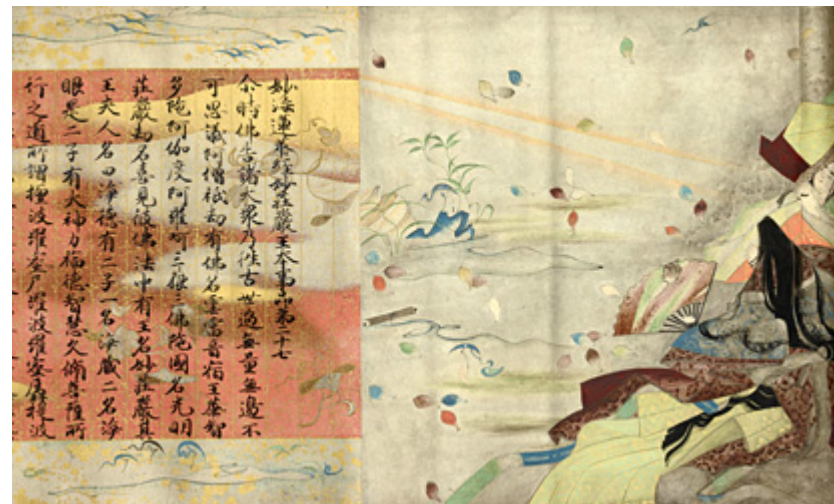 妙法蓮華経妙荘厳王本事品第二十七
尓時佛告諸大衆乃往古世過無量無邊不
可思議阿僧祇劫有佛名雲雷音宿王華智
多陀阿伽度阿羅訶三藐三佛陀國名光明
荘嚴劫名喜見彼佛法中有王名妙荘嚴其
王夫人名曰淨徳有二子一名淨藏二名淨
眼是二子有大神力福徳智慧久修菩薩所
行之道所謂檀波羅蜜尸羅波羅蜜羼提波